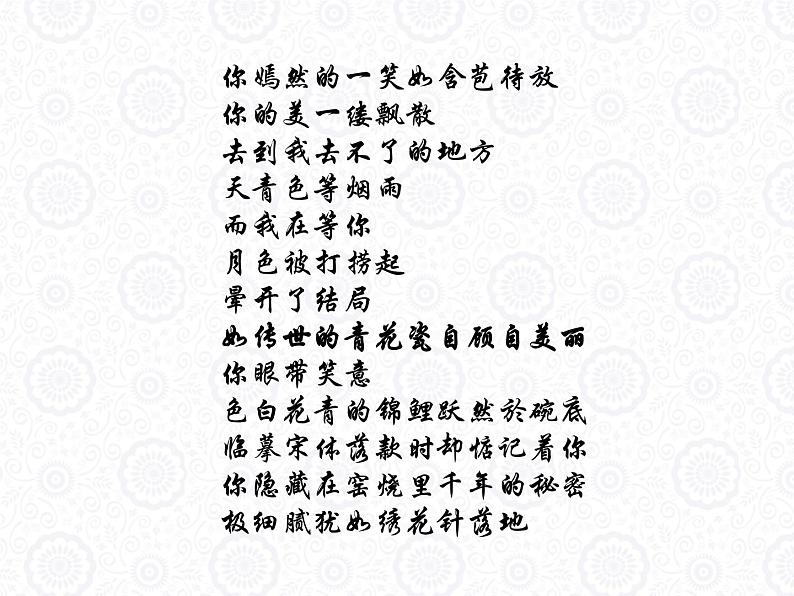 你嫣然的一笑如含苞待放
你的美一缕飘散
去到我去不了的地方
天青色等烟雨
而我在等你
月色被打捞起
晕开了结局
如传世的青花瓷自顾自美丽
你眼带笑意
色白花青的锦鲤跃然於碗底
临摹宋体落款时却惦记着你
你隐藏在窑烧里千年的秘密
极细腻犹如绣花针落地